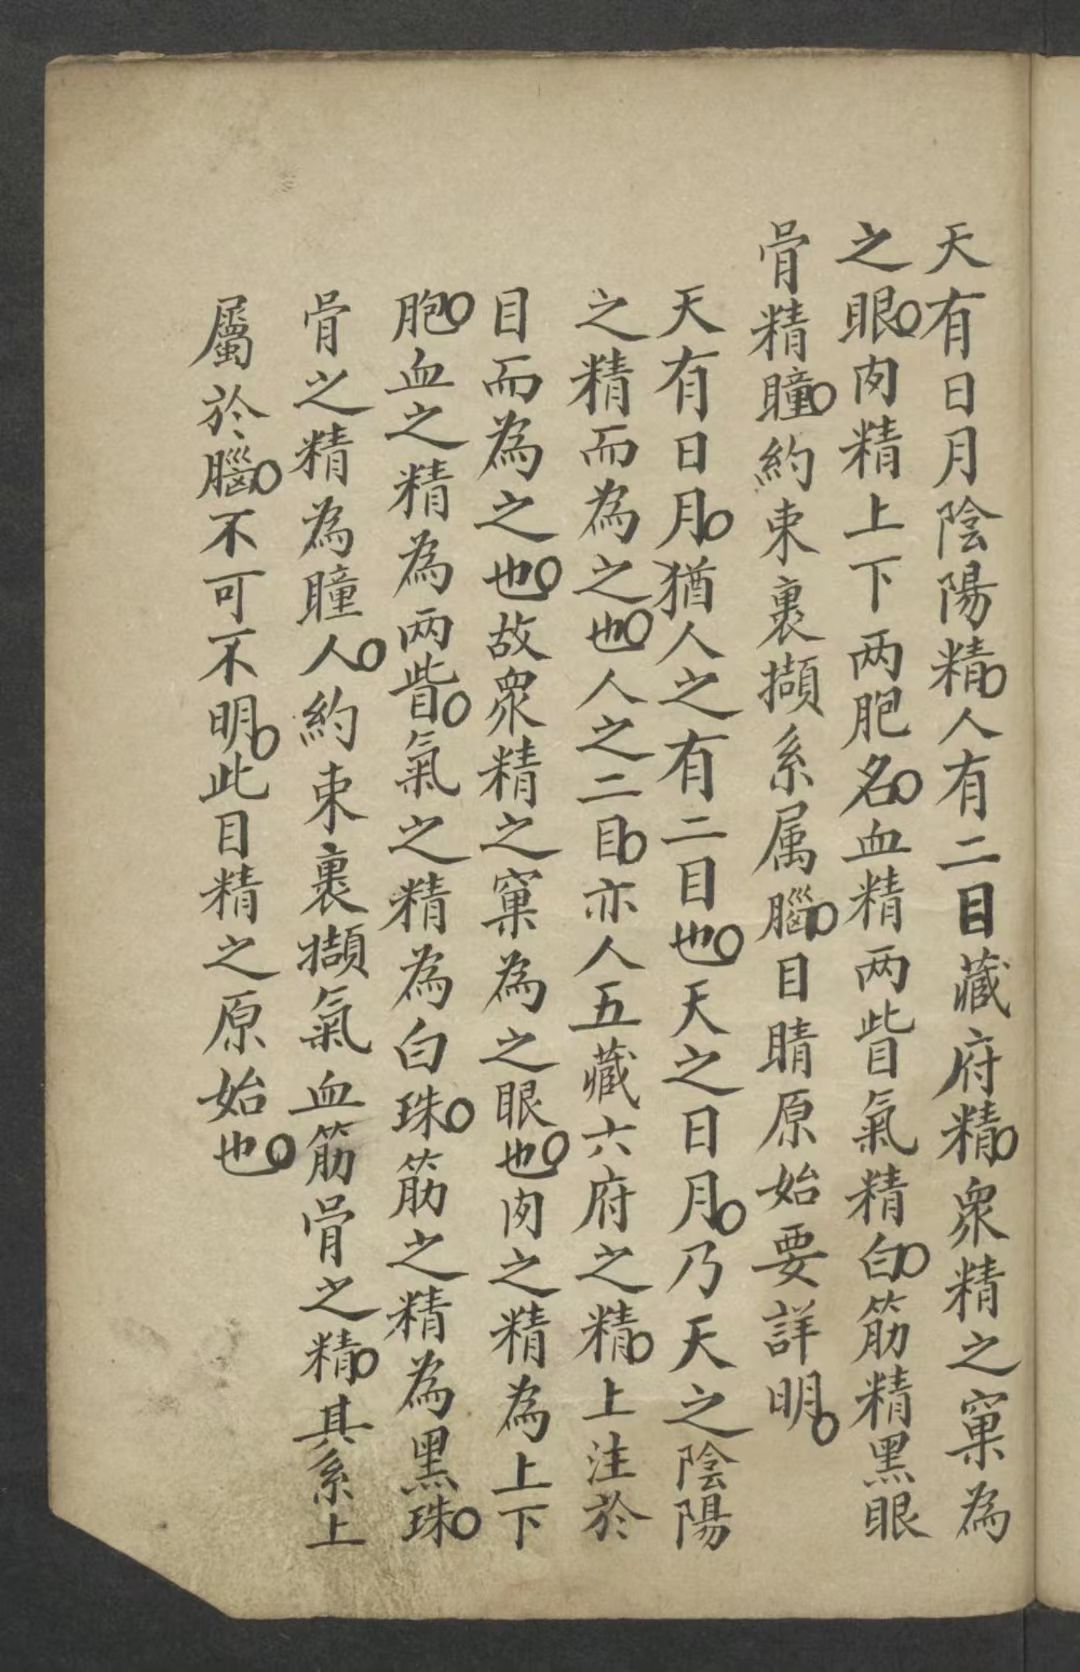 天有日月陰陽精○人有二目藏府精○衆精之窠為
之眼○肉精上下两胞名○血精两眥氣精白○筋精黑眼
骨精瞳○約束裹擷系属腦○目睛原始要詳明○
天有日月○猶人之有二目也○天之日月○乃天之陰陽
之精而為之也○人之二目○亦人五藏六府之精○上注於
目而為之也○故衆精之窠為之眼也○肉之精為上下
胞○血之精為两眥○氣之精為白珠○筋之精為黑珠○
骨之精為瞳人○約束裹擷氣血筋骨之精○其系上
屬於腦○不可不明○此目精之原始也○